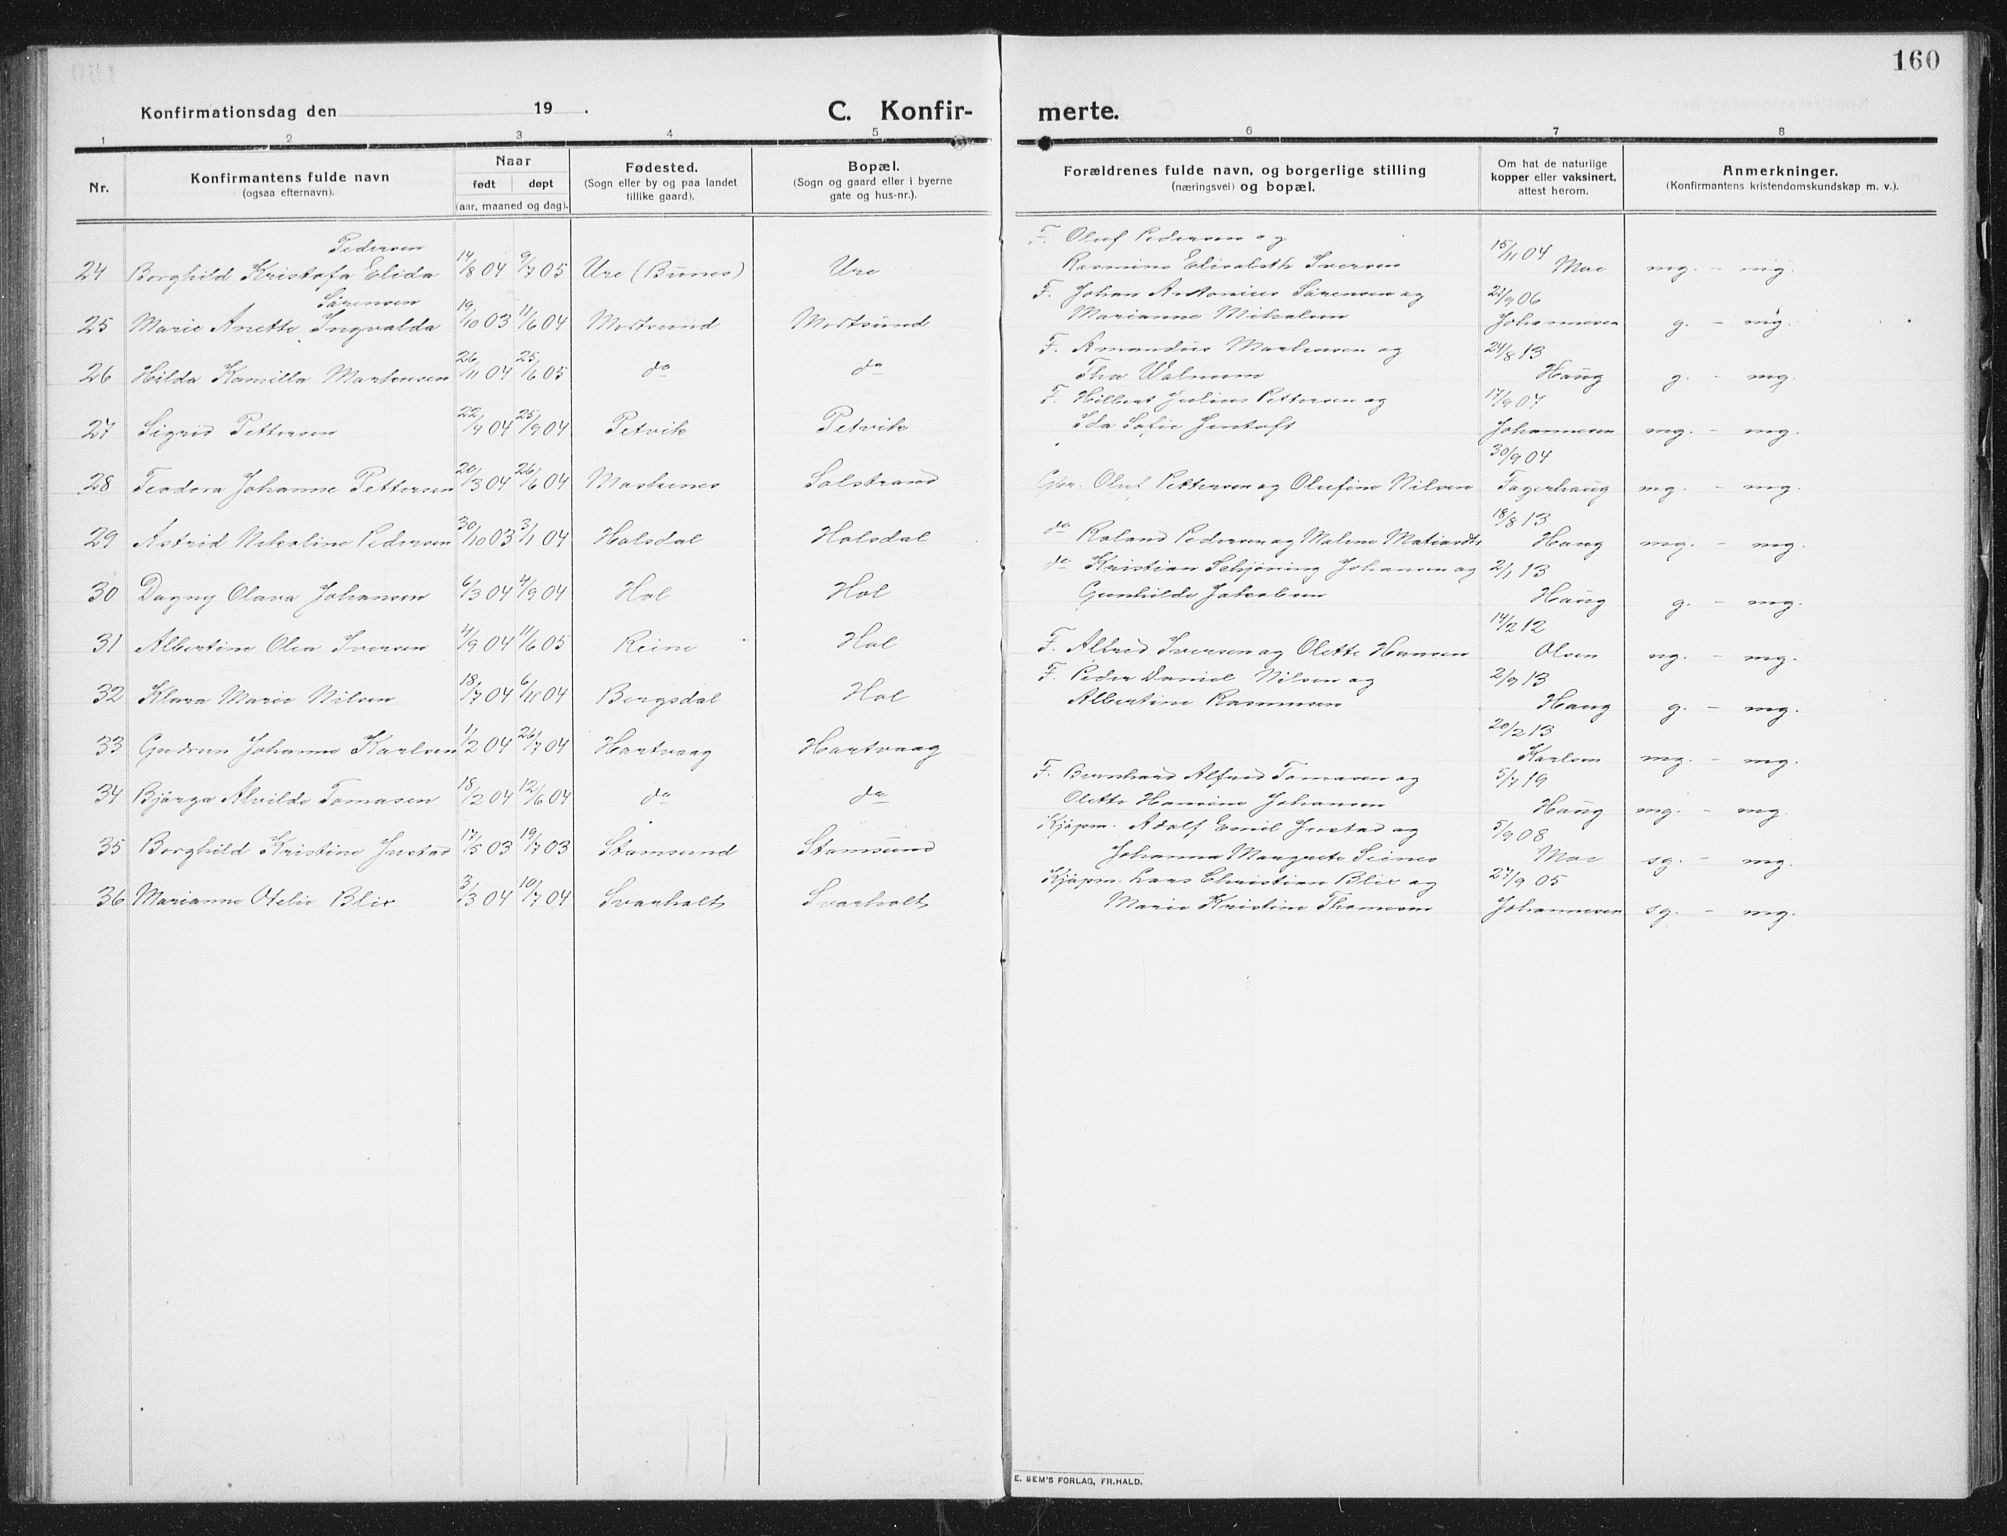 160
Konfirmationsdag den 19 .
C. Konfir-
merte.
1 2 3 4 5 6 7 8
Nr.
Konfirmantens fulde navn
(ogsaa efternavn).
Naar
født døpt
(aar, maaned og dag).
Fødested.
(Sogn eller by og paa landet
tillike gaard).
Bopæl.
(Sogn og gaard eller i byerne
gate og hus-nr.).
Forældrenes fulde navn, og borgerlige stilling
(næringsvei) og bopæl.
Om hat de naturlige
kopper eller vaksinert,
attest herom.
Anmerkninger.
(Konfirmantens kristendomskundskap m. v.).
Pedersen F. Oluf Pedersen og 15/11 04
24 Borghild Kristofa Elida 14/8 04 9/7 05 Ure (Bunes) Ure Rasmine Elisabeth Iversen Moe mg. - mg.
Sørensen F. Johan Antonius Sørensen og 21/9 06
25 Marie Anette Ingvalda 19/10 03 11/6 04 Mortsund Mortsund Marianne Mikalsen Johannesen g. - mg.
F. Amandus Markussen og 24/8 13
26 Hilda Kamilla Markussen 26/11 04 25/6 05 do do Thea Haug g. - mg.
F. Hilbert Julius Pettersen og 17/9 07
27 Sigrid Pettersen 22/4 04 25/9 04 Petvik Petvik Ida Sofie Jentoft Johannesen mg. - mg.
30/9 04
28 Teodora Johanne Pettersen 20/3 04 26/6 04 Moskenes Solstrand Gbr. Oluf Pettersen og Olufine Nilsen Fagerhaug mg. - mg.
18/8 13
29 Astrid Nikoline Pedersen 30/10 03 3/1 04 Holsdal Holsdal do Roland Pedersen og Malene Haug mg. - mg.
do Kristian Schjøning Johansen og 2/1 13
30 Dagny Olava Johansen 6/3 04 4/9 04 Hol Hol Gunhilde Jakobsen Haug g. - mg.
14/2 12
31 Albertine Olea Iversen 4/9 04 11/6 05 Reine Hol F. Alfred Iversen og Olette Hansen Olsen ng. - mg.
F. Peder Daniel Nilsen og 2/9 13
32 Klara Marie Nilsen 18/7 04 6/11 04 Bergsdal Hol Albertine Rasmussen Haug g. - mg.
20/2 13
33 Gudrun Johanne Karlsen 1/2 04 26/7 04 Hartvaag Hartvaag Karlsen mg. - mg.
F. Bernhard Alfred Tomasen og 5/7 19
34 Bjørga Alvilde Tomasen 18/2 04 12/6 04 do do Olette Hansine Johansen Haug mg. - mg.
Kjøpm. Adolf Emil Justad og 5/9 08
35 Borghild Kristine Justad 17/5 03 19/7 03 Stamsund Stamsund Johanna Margrete Sienes Moe sg. - mg.
Kjøpm. Lars Christian Blix og 27/9 05
36 Marianne Otelie Blix 3/3 04 10/7 04 Svarholt Svarholt Marie Kristine Thomesen Johannesen sg. - mg.
E. SEM'S FORLAG, FR.HALD.